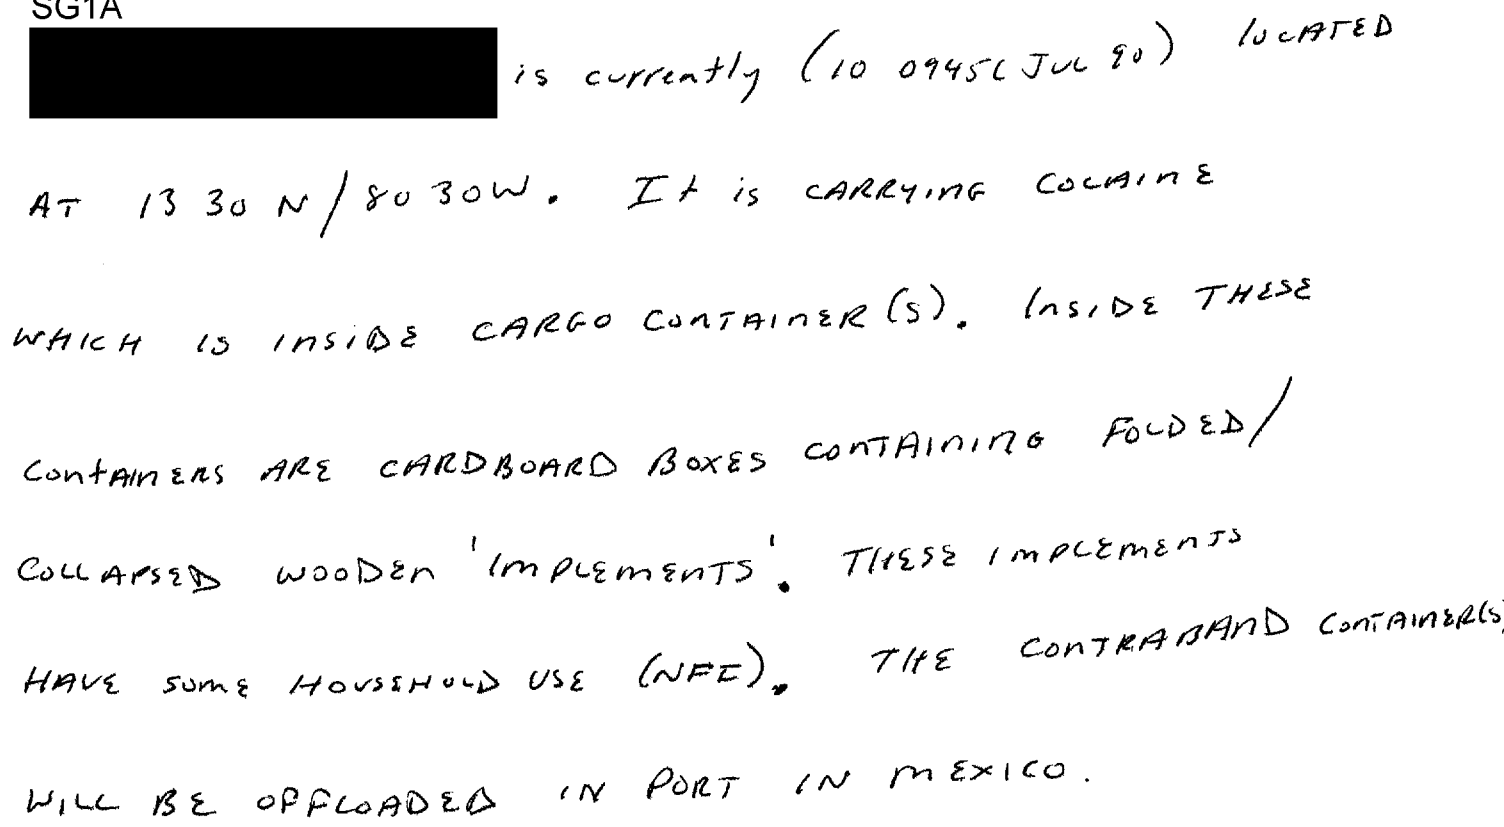 SG1A
is currently (10 0945L JUL 90) located
AT 13 30 N/80 30W. It is CARRYING COCAINE
WHICH IS INSIDE CARGO CONTAINER(S). INSIDE THESE
CONTAINERS ARE CARDBOARD BOXES CONTAINING FOLDED/
COLLAPSED WOODEN 'IMPLEMENTS'. THESE IMPLEMENTS
HAVE SOME HOUSEHOLD USE (NFI). THE CONTRABAND CONTAINER(S)
WILL BE OFFLOADED IN PORT IN MEXICO.